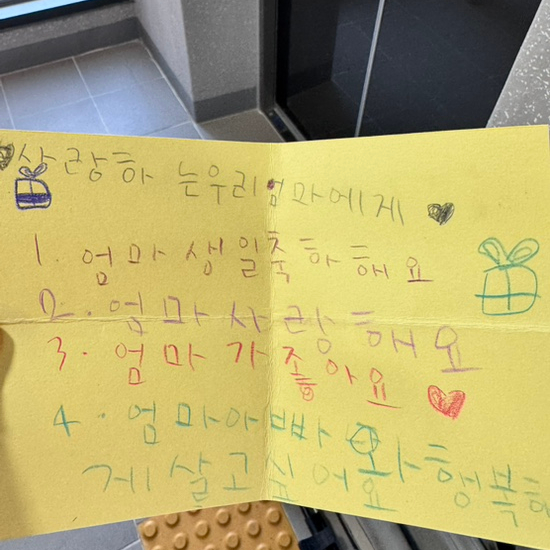 사랑하는우리엄마에게
1. 엄마 생일축하해요
2. 엄마 사랑해요
3. 엄마가 좋아요
4. 엄마아빠와행복하
게살고싶어요